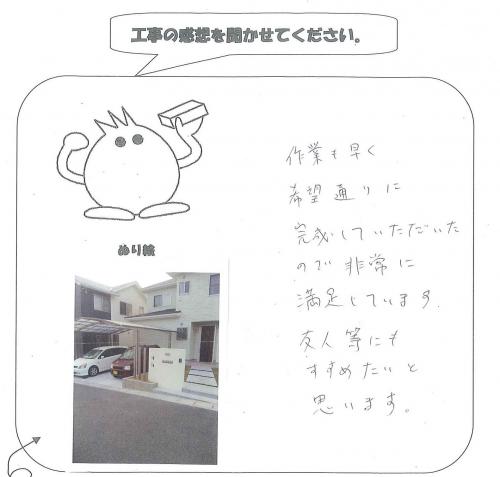 工事の感想を聞かせてください。
作業も早く
希望通りに
完成していただいた
ので非常に
満足しています。
友人等にも
すすめたいと
思います。
ぬり絵